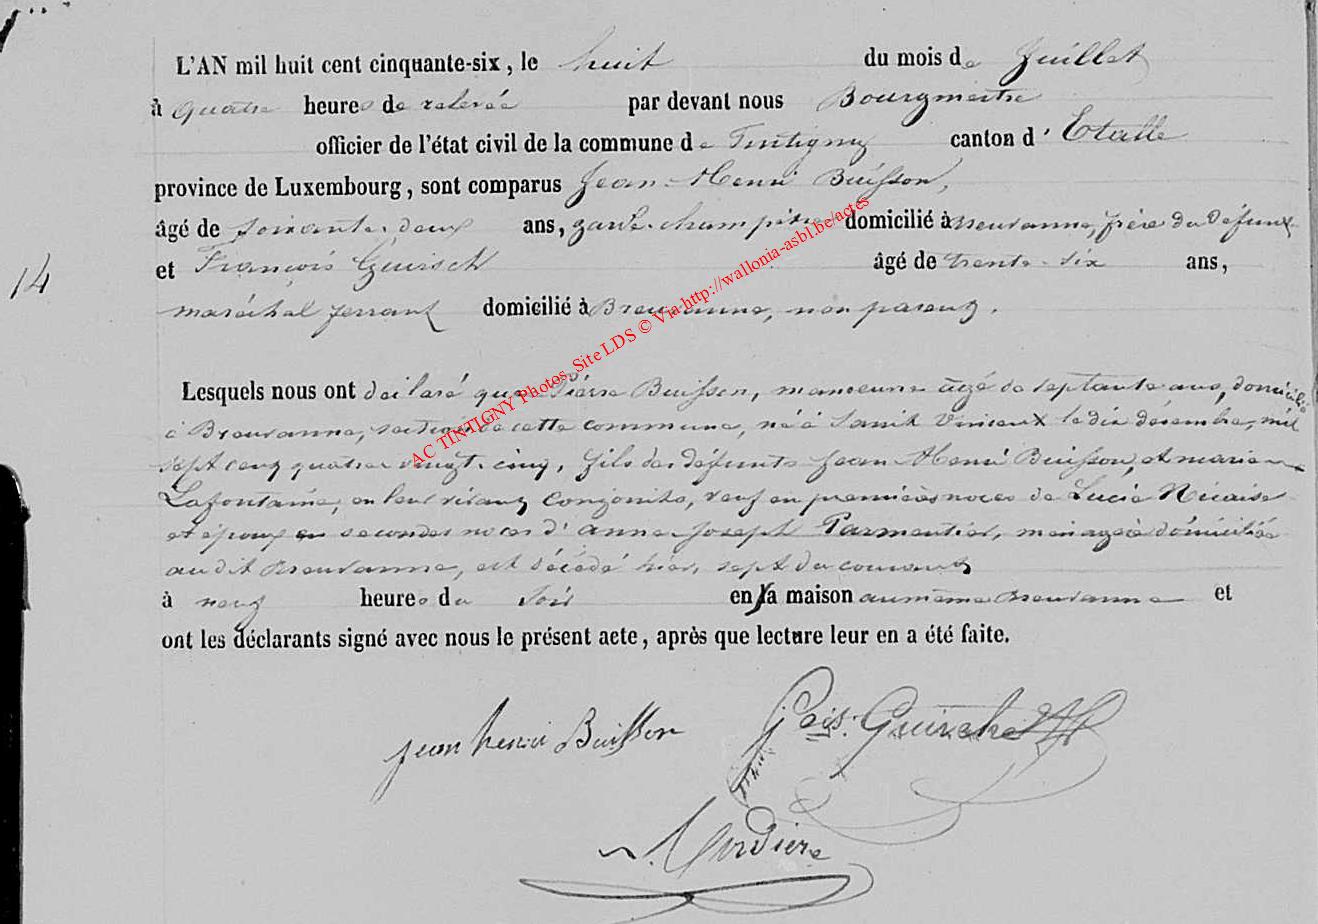 L'AN mil huit cent cinquante-six, le huit du mois de Juillet
à quatre heures de relevée par devant nous Bourgmestre
officier de l'état civil de la commune de Tintigny canton d'Etalle
province de Luxembourg, sont comparus Jean-Henri Buisson,
âgé de soixante-deux ans, garde-champêtre domicilié à Breuvanne, frère du défunt
et François Guirsch âgé de trente-six ans,
14
maréchal ferrant domicilié à Breuvanne, non parent.
Lesquels nous ont déclaré que Pierre Buisson, manoeuvre âgé de septante ans, domicilié
à Breuvanne, section de cette commune, né à Saint Vincent le dix décembre, mil
sept cent quatre vingt-cinq, fils des défunts Jean Henri Buisson, et Marie
Lafontaine, en leur vivant conjoints, veuf en premières noces de Lucie Nicaise
et époux en secondes noces d'Anne Joseph Parmentier, ménagère domiciliée
audit Breuvanne, est décédé hier, sept du courant
à neuf heures du soir en la maison au même Breuvanne et
ont les déclarants signé avec nous le présent acte, après que lecture leur en a été faite.
jean henri Buisson
Guirsch
AC TINTIGNY Photos, Site LDS © Via http://wallonia-asbl.be/actes